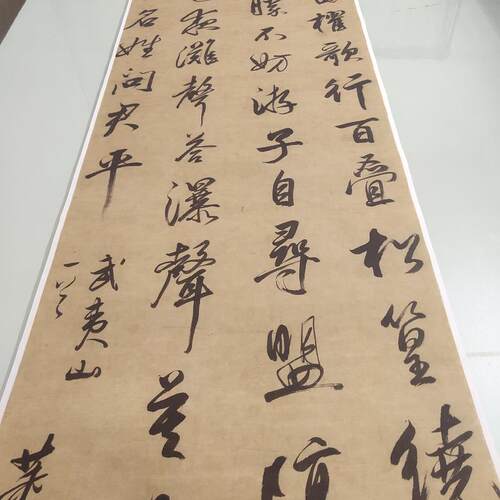 櫂歌行百疊松篁繞
不妨游子自尋盟
夜灘聲答瀑聲莫
名姓問君平
武夷山
一